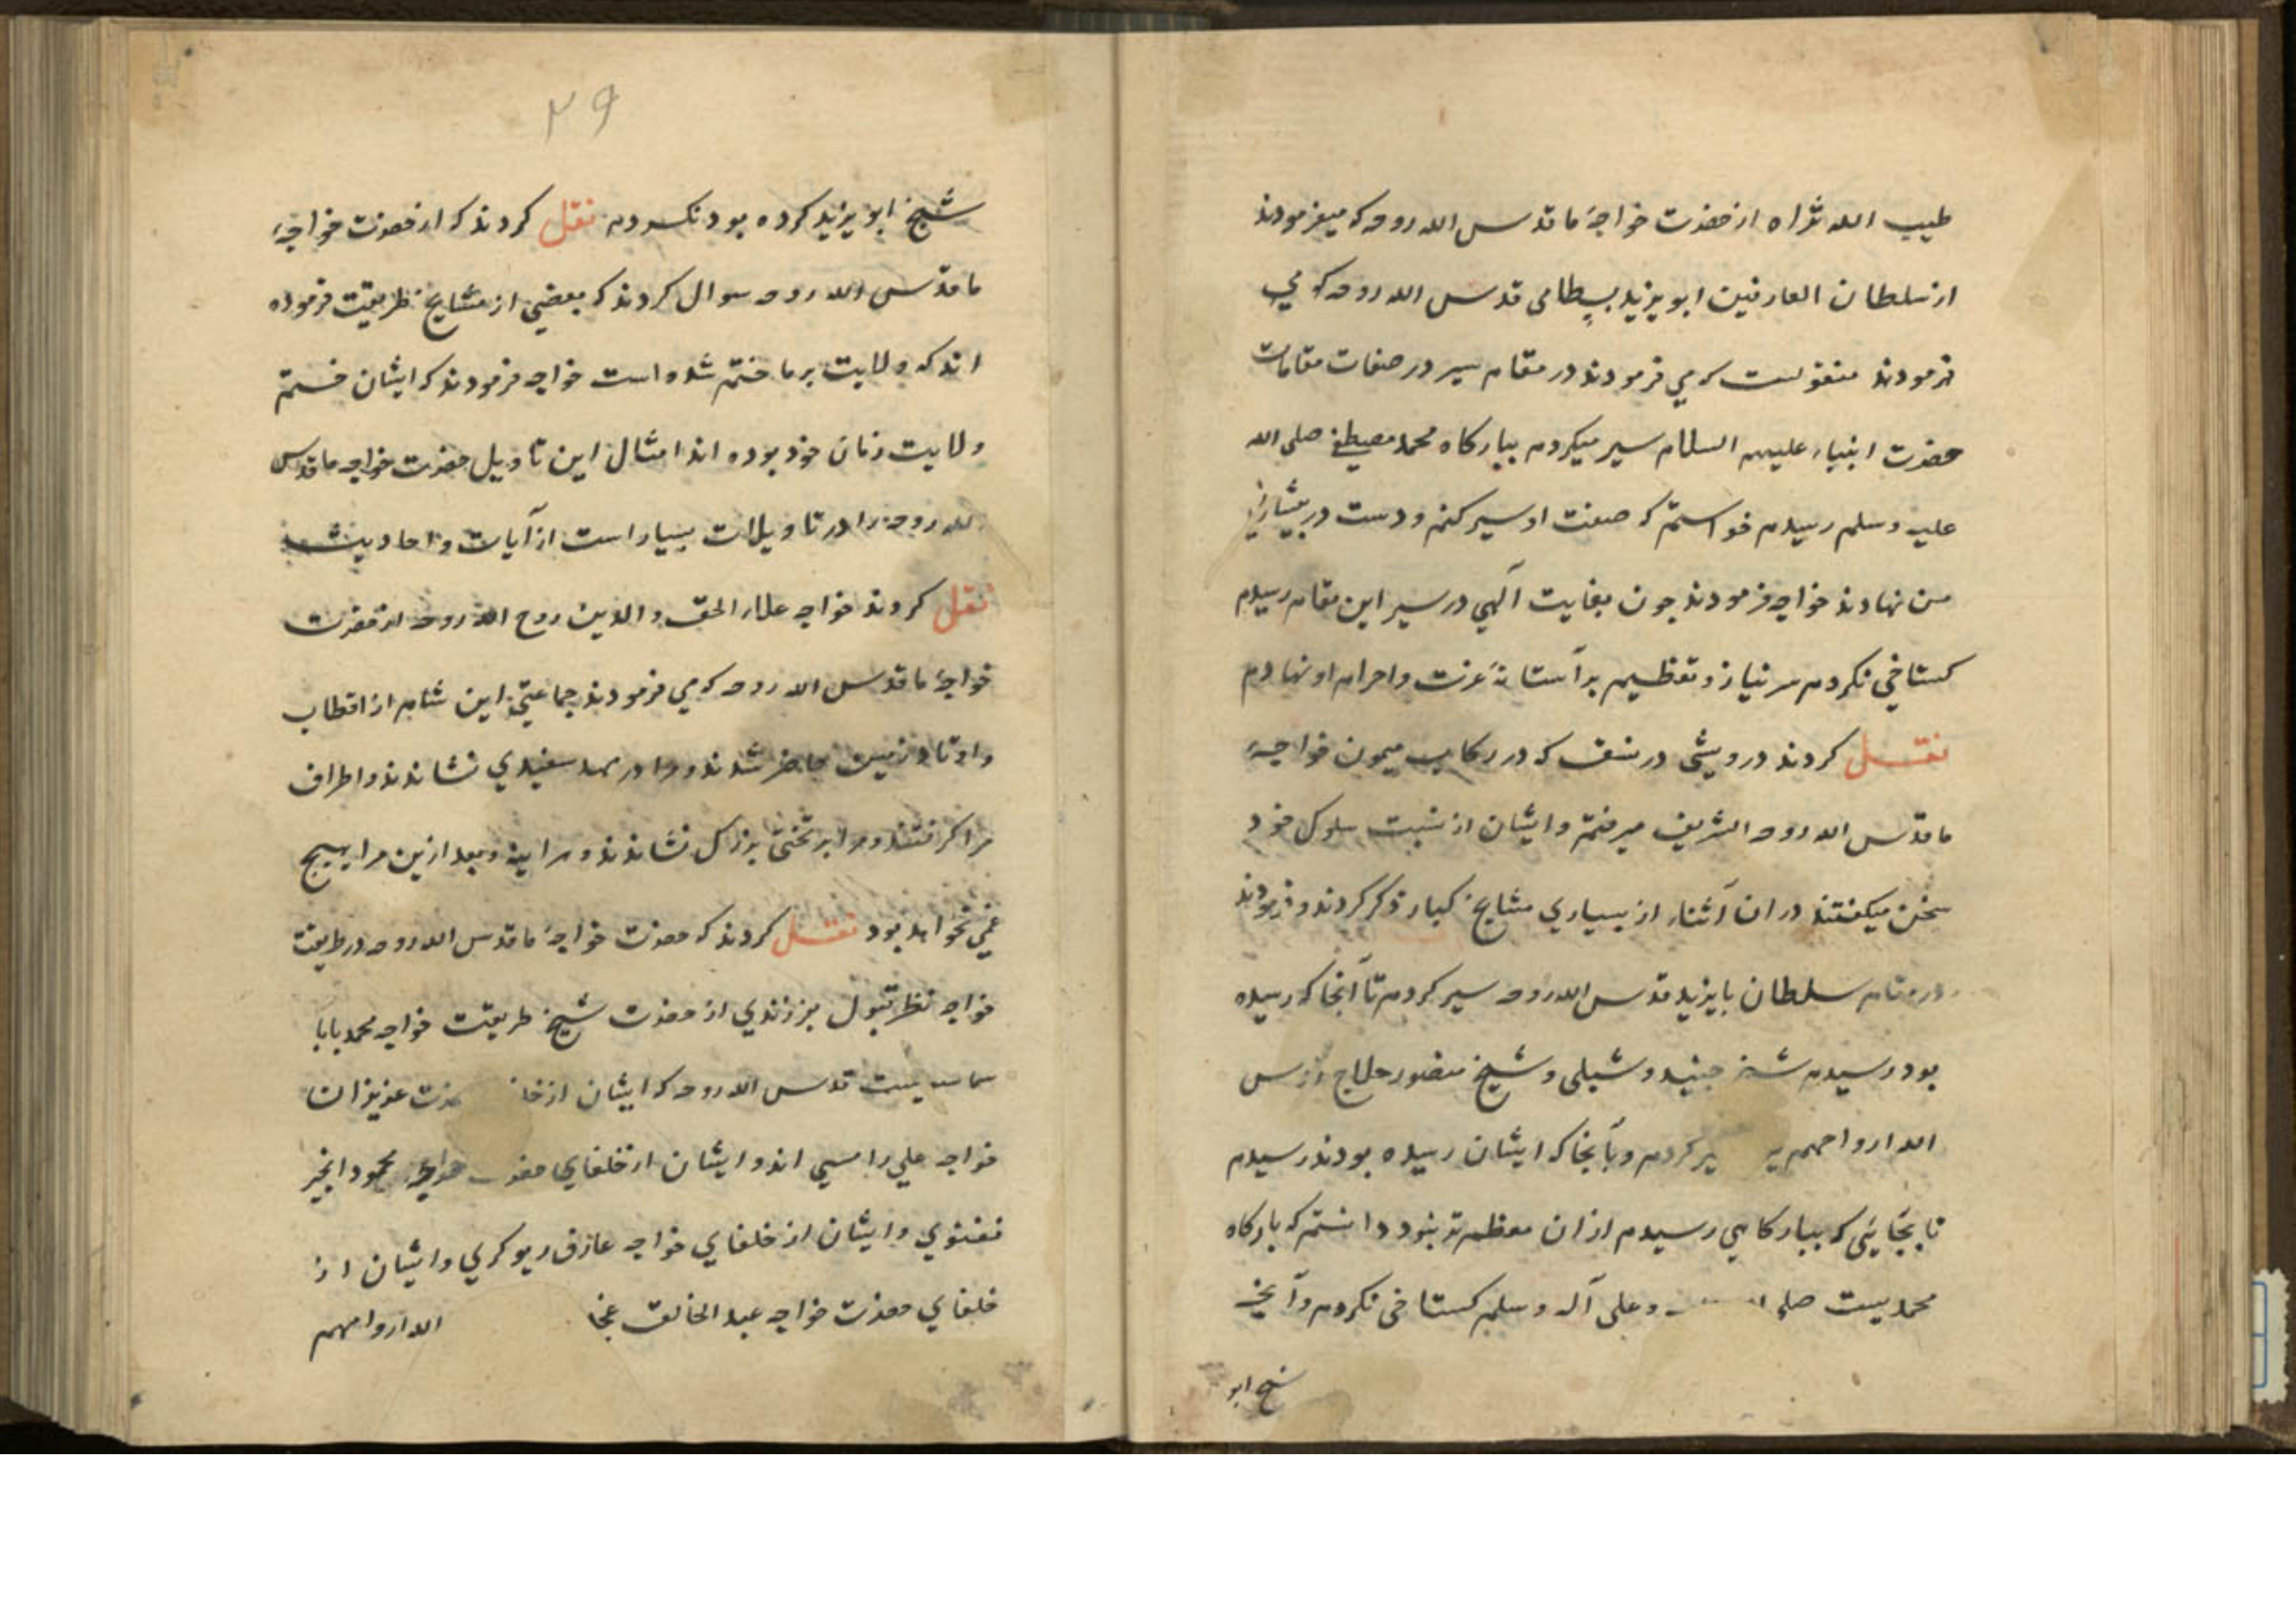 طیب الله ثراه از حضرت خواجهٔ ما قدس الله روحه که میفرمودند
از سلطان العارفین ابو یزید بسطامی قدس الله روحه که می
فرمودند منقولست که می فرمودند در مقام سیر در صفات مقامات
حضرت انبیاء علیهم السلام سیر میکردم ببارکاه محمد مصطفی صلی الله
علیه وسلم رسیدم خواستم که صفت او سیر کنم و دست در پیشانی
من نهادند خواجه فرمودند چون بعنایت آلهی در سیر این مقام رسیدم
کستاخی نکردم سر نیاز و تعظیم بر آستانهٔ عزت و احرام او نهادم
نقل کردند درویشی در نسف که در رکاب میمون خواجهٔ
ما قدس الله روحه الشریف میرفتم و ایشان از نسبت سلوک خود
سخن میکفتند در ان آثناء از بسیاری مشایخ کبار ذکر کردند و فرمودند
در مقام سلطان بایزید قدس الله روحه سیر کردم تا آنجا که رسیده
بود رسیدم شیخ جنید و شبلی و شیخ منصور حلاج قدس
الله ارواحهم کردم و بآنجا که ایشان رسیده بودند رسیدم
تا بجایی که ببارکاهی رسیدم ازان معظم تر نبود دانستم که بارکاه
محمدیست صلی وعلی آله وسلم کستاخی نکردم و آنچ
شیخ ابو
۲۹
شیخ ابو یزید کرده بود نکردم نقل کردند که از حضرت خواجهٔ
ما قدس الله روحه سوال کردند که بعضی از مشایخ طریقت فرموده
اند که ولایت بر ما ختم شده است خواجه فرمودند که ایشان ختم
ولایت زمان خود بوده اند امثال این تاویل حضرت خواجه ما قدس
الله روحه را در تاویلات بسیار است از آیات و احادیث
نقل کردند خواجه علاء الحق و الدین روح الله روحه از حضرت
خواجهٔ ما قدس الله روحه که می فرمودند جماعتی این شام از اقطاب
و اوتاد زمین حاضر شدند و مرا در مهد سفیدی نشاندند و اطراف
مرا کرفتند و مرا بر تختی بزرک نشاندند و بعد ازین مرا هیچ
غمی نخواهد بود نقل کردند که حضرت خواجهٔ ما قدس الله روحه در طریقت
خواجه نظر قبول بفرزندی از حضرت شیخ طریقت خواجه محمد بابا
سماسیست قدس الله روحه که ایشان از عزیزان
خواجه علی رامسی اند و ایشان از خلفای حضرت خواجه محمود انجیر
فغنوی و ایشان از خلفای خواجه عارف ریوکری و ایشان از
خلفای حضرت خواجه عبد الخالق الله ارواحهم